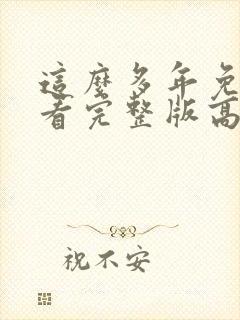 這麼多年免
看完整版高
祝不安